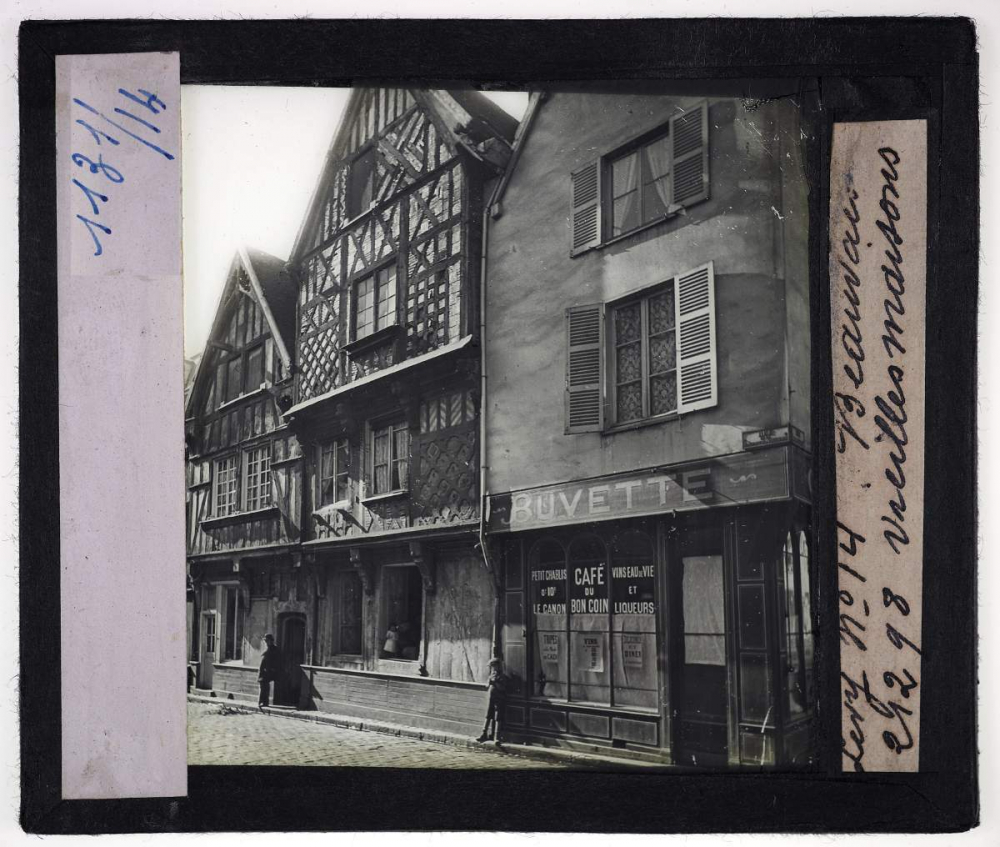 1131/14
BUVETTE
PETIT CHABLIS
0.10c
LE CANON
CAFÉ
DU
BON COIN
VINS EAU DE VIE
ET
LIQUEURS
Levy No 14 Beauvais
24298 vieilles maisons